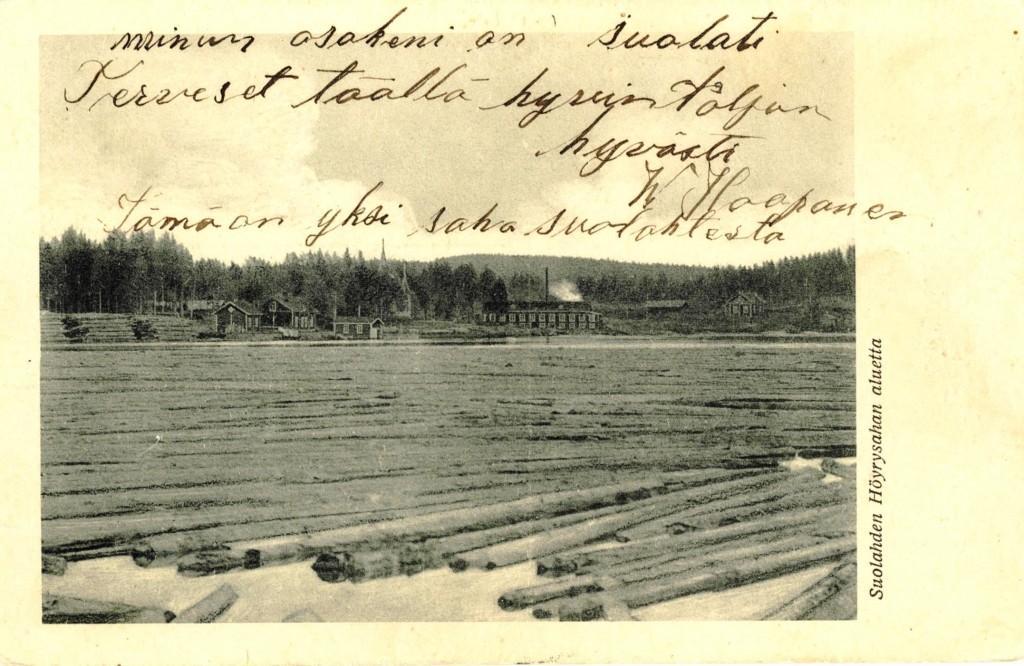 minun osakeni on suolati
Terveset täältä hyvin Täljän
hyvästi
K Haapanen
Tämä on yksi saha suolahtesta
Suolahden Höyrysahan aluetta